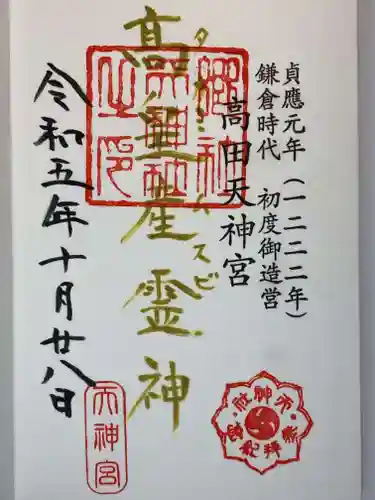 貞應元年(一二二二年)
鎌倉時代 初度御造営
高田天神宮
タカミムスビ
高皇産霊神
令和五年十月廿八日
天神宮